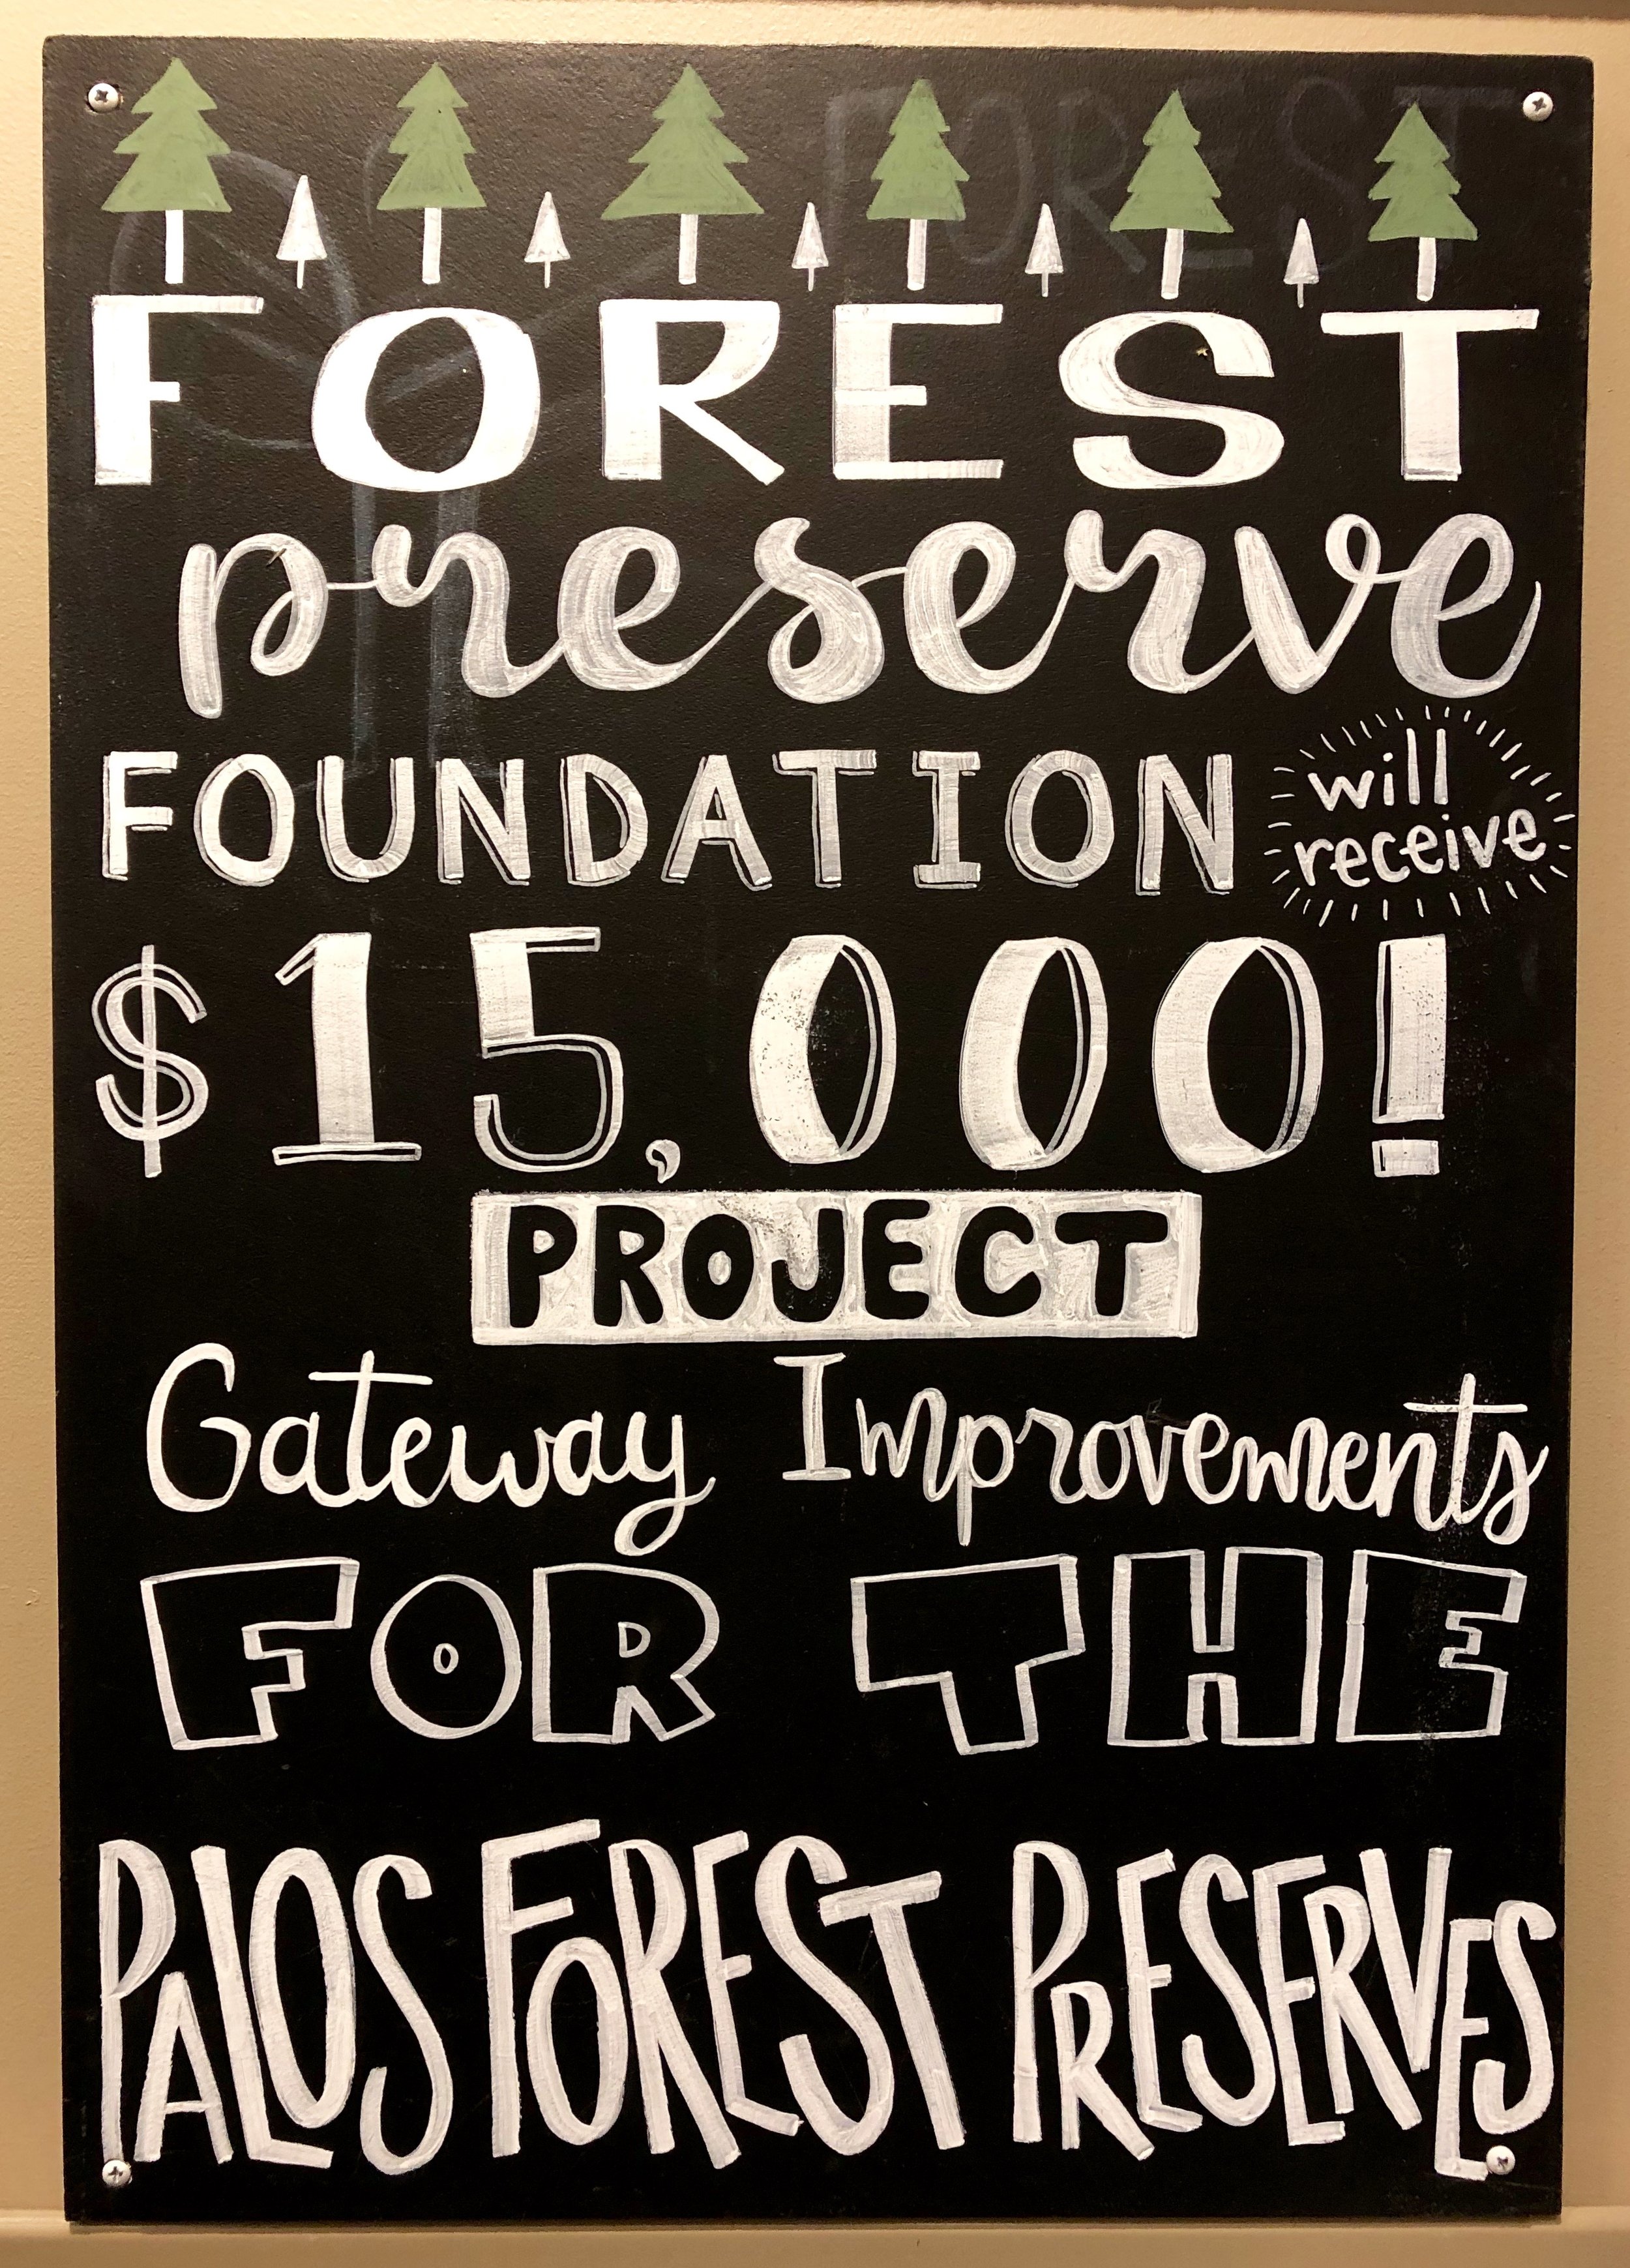 FOREST
preserve
FOUNDATION will
receive
$15,000!
PROJECT
Gateway Improvements
FOR THE
PALOS FOREST PRESERVES